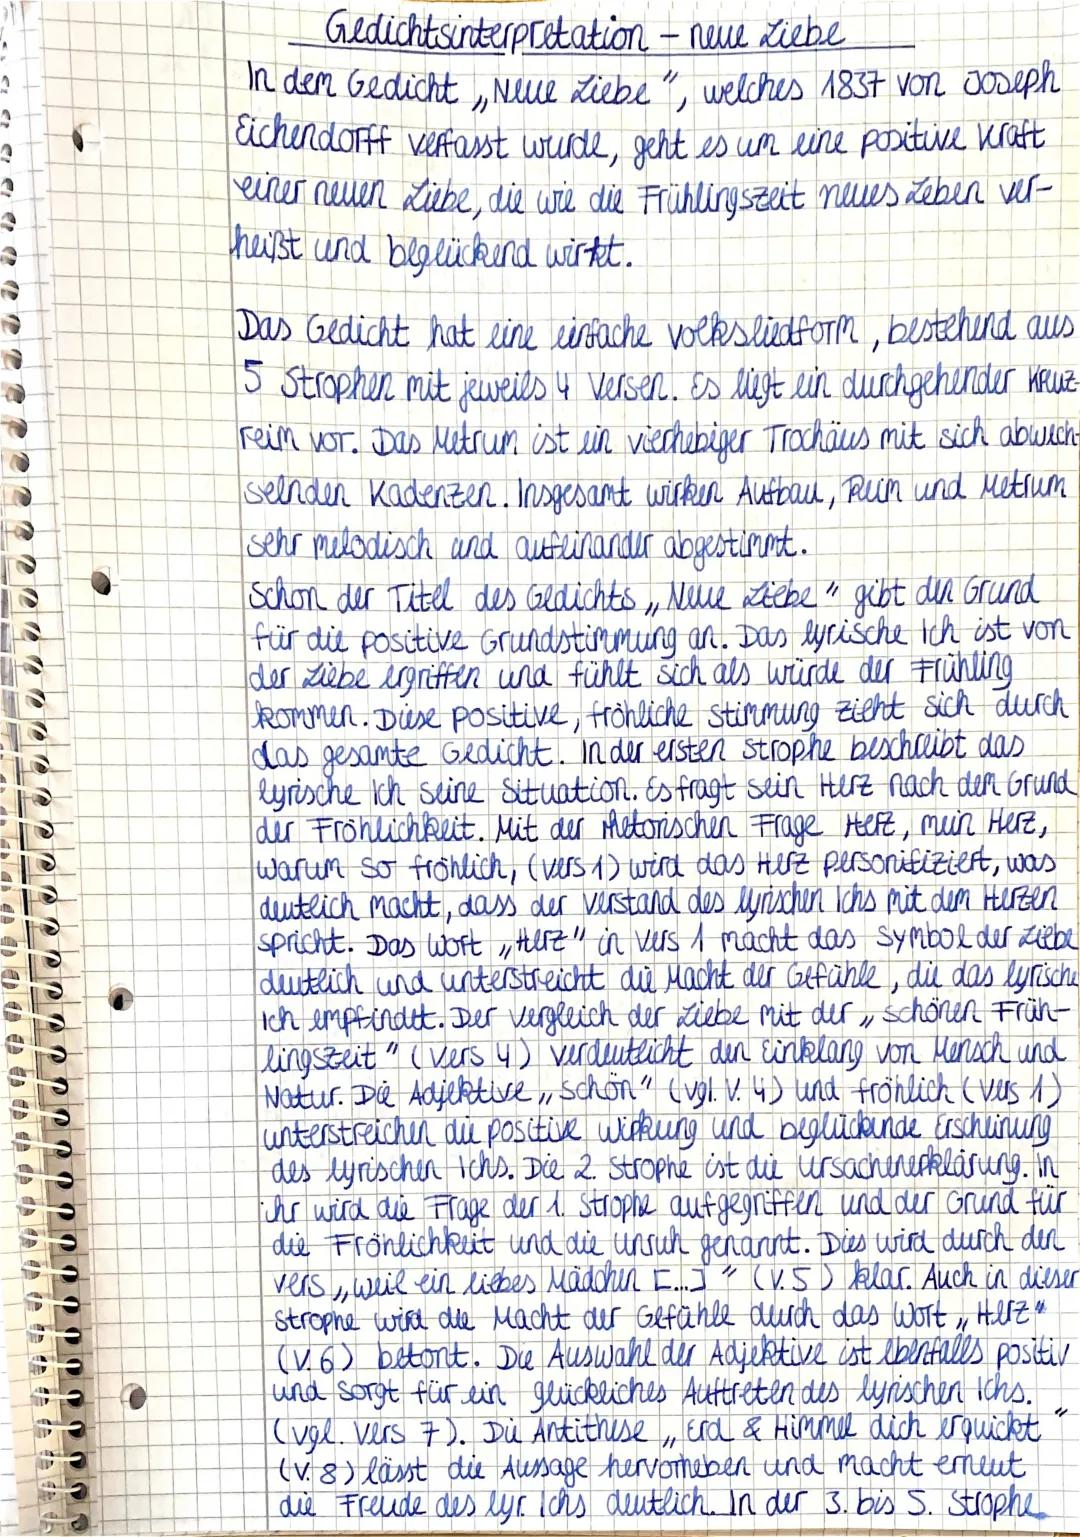 Gedichtsinterpretation – neue Liebe
In dem Gedicht „Neue Liebe", welches 1837 von Joseph
Eichendorff verfasst wurde, geht es um eine positive Kraft
einer neuen Liebe, die wie die Frühlingszeit neues Leben ver-
heißt und beglückend wirkt.
Das Gedicht hat eine einfache Volksliedform, bestehend aus
5 Strophen mit jeweils 4 Versen. Es liegt ein durchgehender Kreuz-
reim vor. Das Metrum ist ein vierhebiger Trochäus mit sich abwech-
selnden Kadenzen. Insgesamt wirken Aufbau, Reim und Metrum
sehr melodisch und aufeinander abgestimmt.
Schon der Titel des Gedichts „Neue Liebe" gibt den Grund
für die positive Grundstimmung an. Das lyrische Ich ist von
der Liebe ergriffen und fühlt sich als würde der Frühling
kommen. Diese positive, fröhliche Stimmung zieht sich durch
das gesamte Gedicht. In der ersten Strophe beschreibt das
lyrische Ich seine Situation. Es fragt sein Herz nach dem Grund
der Fröhlichkeit. Mit der rhetorischen Frage Herz, mein Herz,
warum so fröhlich, (Vers 1) wird das Herz personifiziert, was
deutlich macht, dass der Verstand des lyrischen Ichs mit dem Herzen
spricht. Das Wort „Herz" in Vers 1 macht das Symbol der Liebe
deutlich und unterstreicht die Macht der Gefühle, die das lyrische
Ich empfindet. Der Vergleich der Liebe mit der „schönen Früh-
lingszeit" (Vers 4) verdeutlicht den Einklang von Mensch und
Natur. Die Adjektive „schön" (vgl. V. 4) und fröhlich (Vers 1)
unterstreichen die positive Wirkung und beglückende Erscheinung
des lyrischen Ichs. Die 2. Strophe ist die Ursachenerklärung. In
ihr wird die Frage der 1. Strophe aufgegriffen und der Grund für
die Fröhlichkeit und die Unruh genannt. Dies wird durch den
Vers „weil ein liebes Mädchen [...]" (V. 5) klar. Auch in dieser
Strophe wird die Macht der Gefühle durch das Wort „Herz"
(V. 6) betont. Die Auswahl der Adjektive ist ebenfalls positiv
und sorgt für ein glückliches Auftreten des lyrischen Ichs.
(vgl. Vers 7). Die Antithese „Erd & Himmel dich erquickt"
(V. 8) lässt die Aussage hervorheben und macht erneut
die Freude des lyr. Ichs deutlich. In der 3. bis 5. Strophe